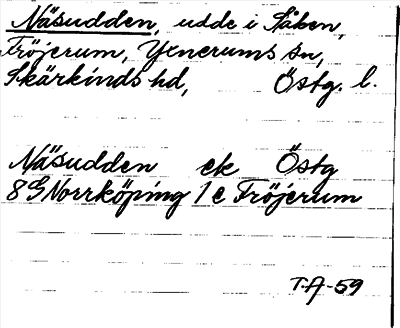 Näsudden, udde i Såken,
Fröjerum, Yxnerums sn,
Skärkinds hd, Östg. l.
Näsudden ek Östg
8 G Norrköping 1 c Fröjerum
T.A-59